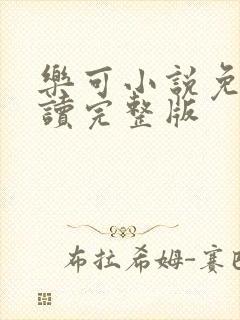 樂可小說免
讀完整版
布拉希姆-賽巴